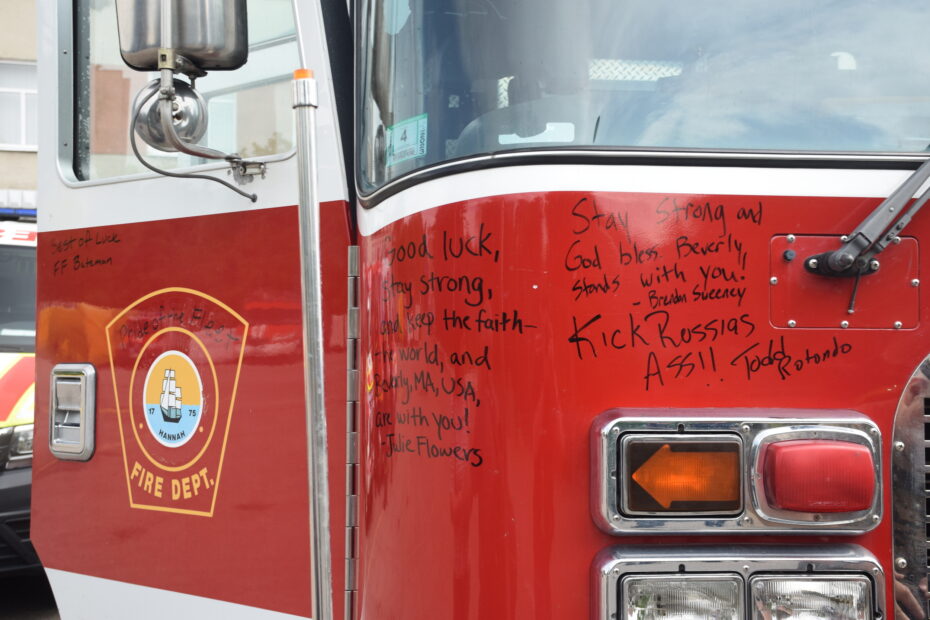 Best of Luck
FF Bateman
Pride of the Fleet
17 75
HANNAH
FIRE DEPT.
4
Good luck,
stay strong,
and keep the faith-
the world, and
Beverly, MA, USA,
are with you!
- Julie Flowers
Stay Strong and
God bless. Beverly,
stands with you!
- Brendan Sweeney
Kick Russias
Ass!! Todd
Rotondo